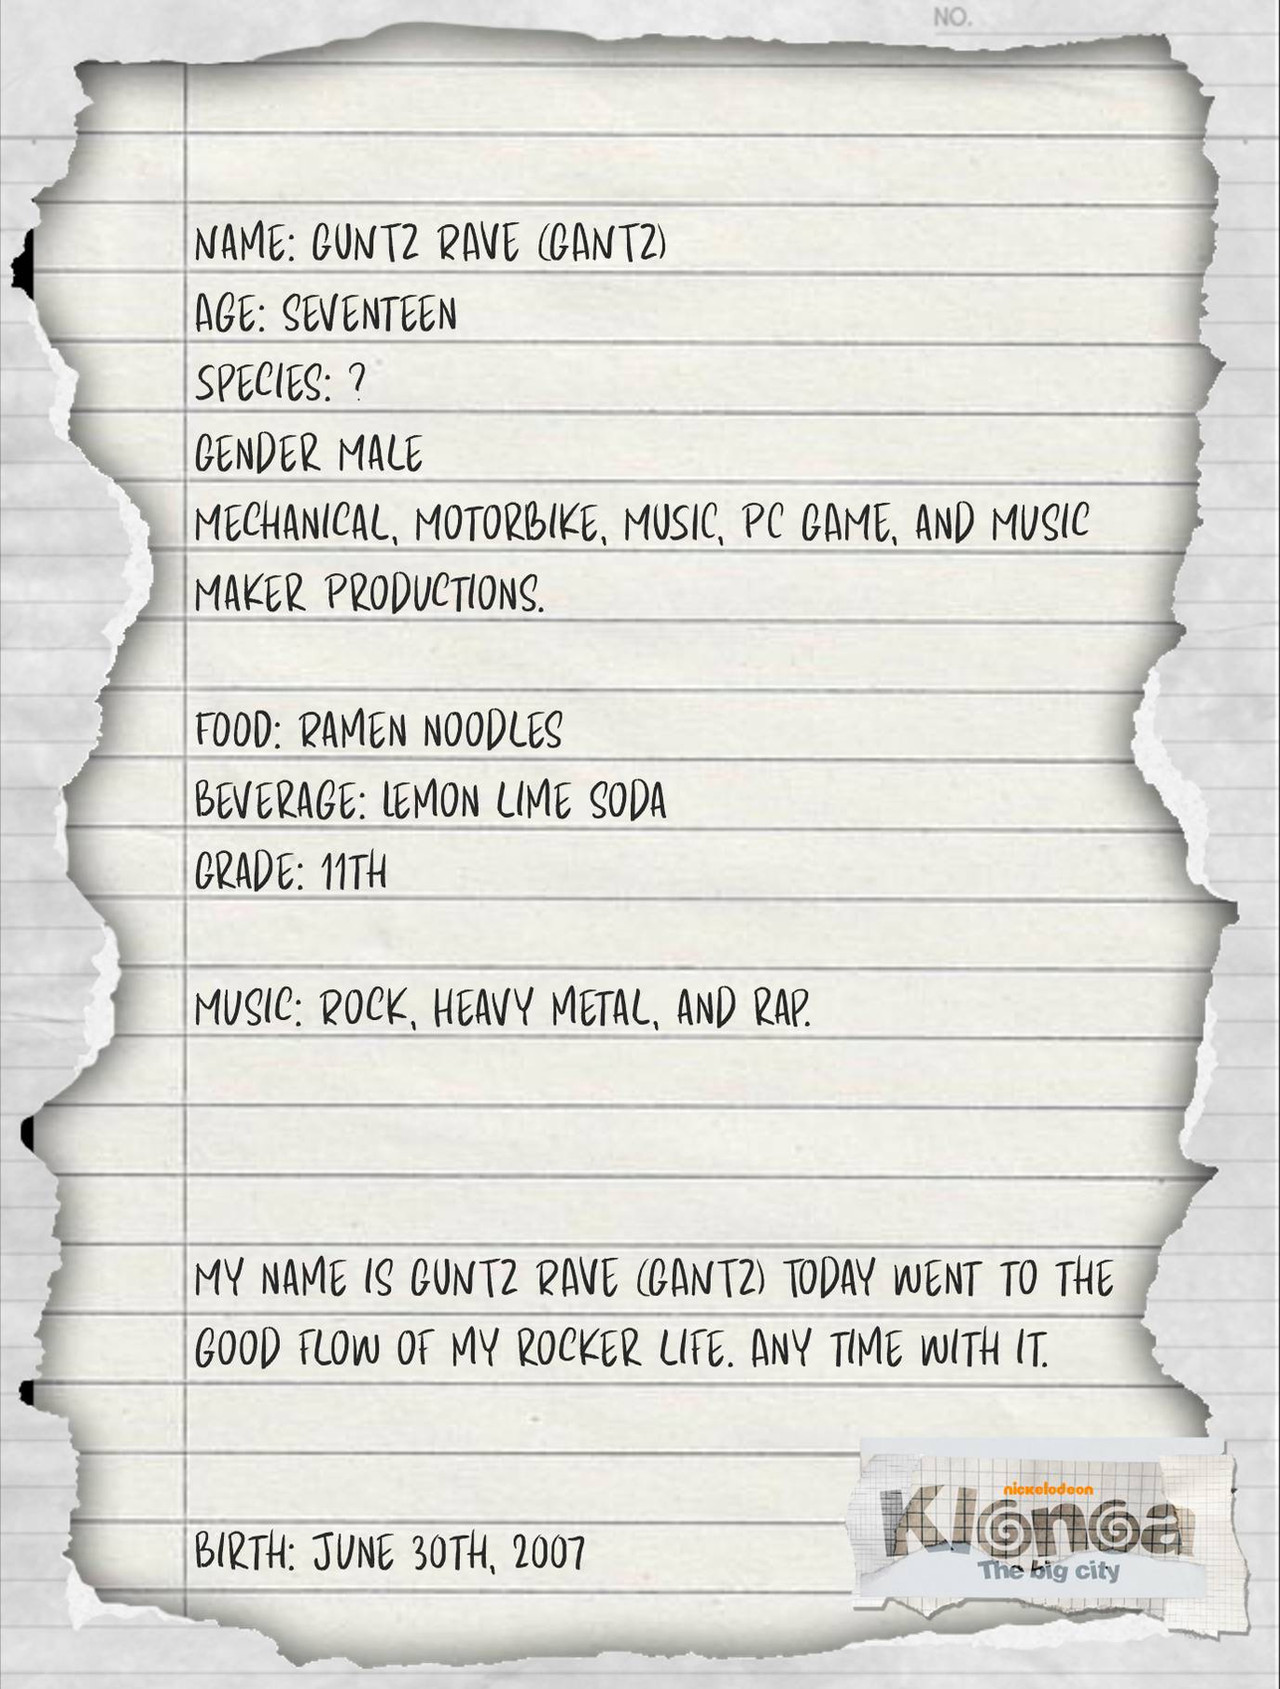 NO.
NAME: GUNTZ RAVE (GANTZ)
AGE: SEVENTEEN
SPECIES: ?
GENDER MALE
MECHANICAL, MOTORBIKE, MUSIC, PC GAME, AND MUSIC
MAKER PRODUCTIONS.
FOOD: RAMEN NOODLES
BEVERAGE: LEMON LIME SODA
GRADE: 11TH
MUSIC: ROCK, HEAVY METAL, AND RAP.
MY NAME IS GUNTZ RAVE (GANTZ) TODAY WENT TO THE
GOOD FLOW OF MY ROCKER LIFE. ANY TIME WITH IT.
BIRTH: JUNE 30TH, 2007
nickelodeon
Klonoa
The big city